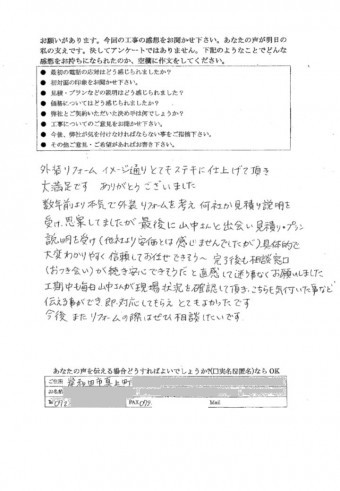 お願いがあります。今回の工事の感想をお聞かせ下さい。あなたの声が明日の
私の支えです。決してアンケートではありません。下記のようなことでどんな
感想をお持ちになられたのか、空欄に作文をしてください。
● 最初の電話の応対はどう感じられましたか?
● 初対面の印象をお聞かせ下さい。
● 見積・プランなどの説明はどう感じられましたか?
● 価格についてはどう感じられましたか?
● 弊社とご契約いただいた決め手は何でしょうか?
● 工事についてのご意見をお聞かせ下さい。
● 今後、弊社が気を付けなければならない事をご指摘下さい。
● その他ご意見・ご希望があればお書き下さい。
外装リフォーム イメージ通りとてもステキに仕上げて頂き
大満足です ありがとうございました
数年前より本気で外装リフォームを考え 何社か見積り説明を
受け、思案してましたが 最後に山中さんと出会い 見積り・プラン
説明を受け(他社より安価とは感じませんでしたが)具体的で
大変わかりやすく信頼してお任せできそう〜 完了後も相談窓口
(おつき会い)が続き安心できそうだと直感して迷う事なくお願いしました
工期中も毎日山中さんが現場状況を確認して頂き、こちらも気付いた事など
伝える事ができ 即対応してもらえ とてもよかったです
今後 またリフォームの際はぜひ相談したいです
あなたの声を伝える場合どうすればよいでしょうか?(口実名 匿名)なら OK
ご住所 岸和田市
お名前
FAX
Mail